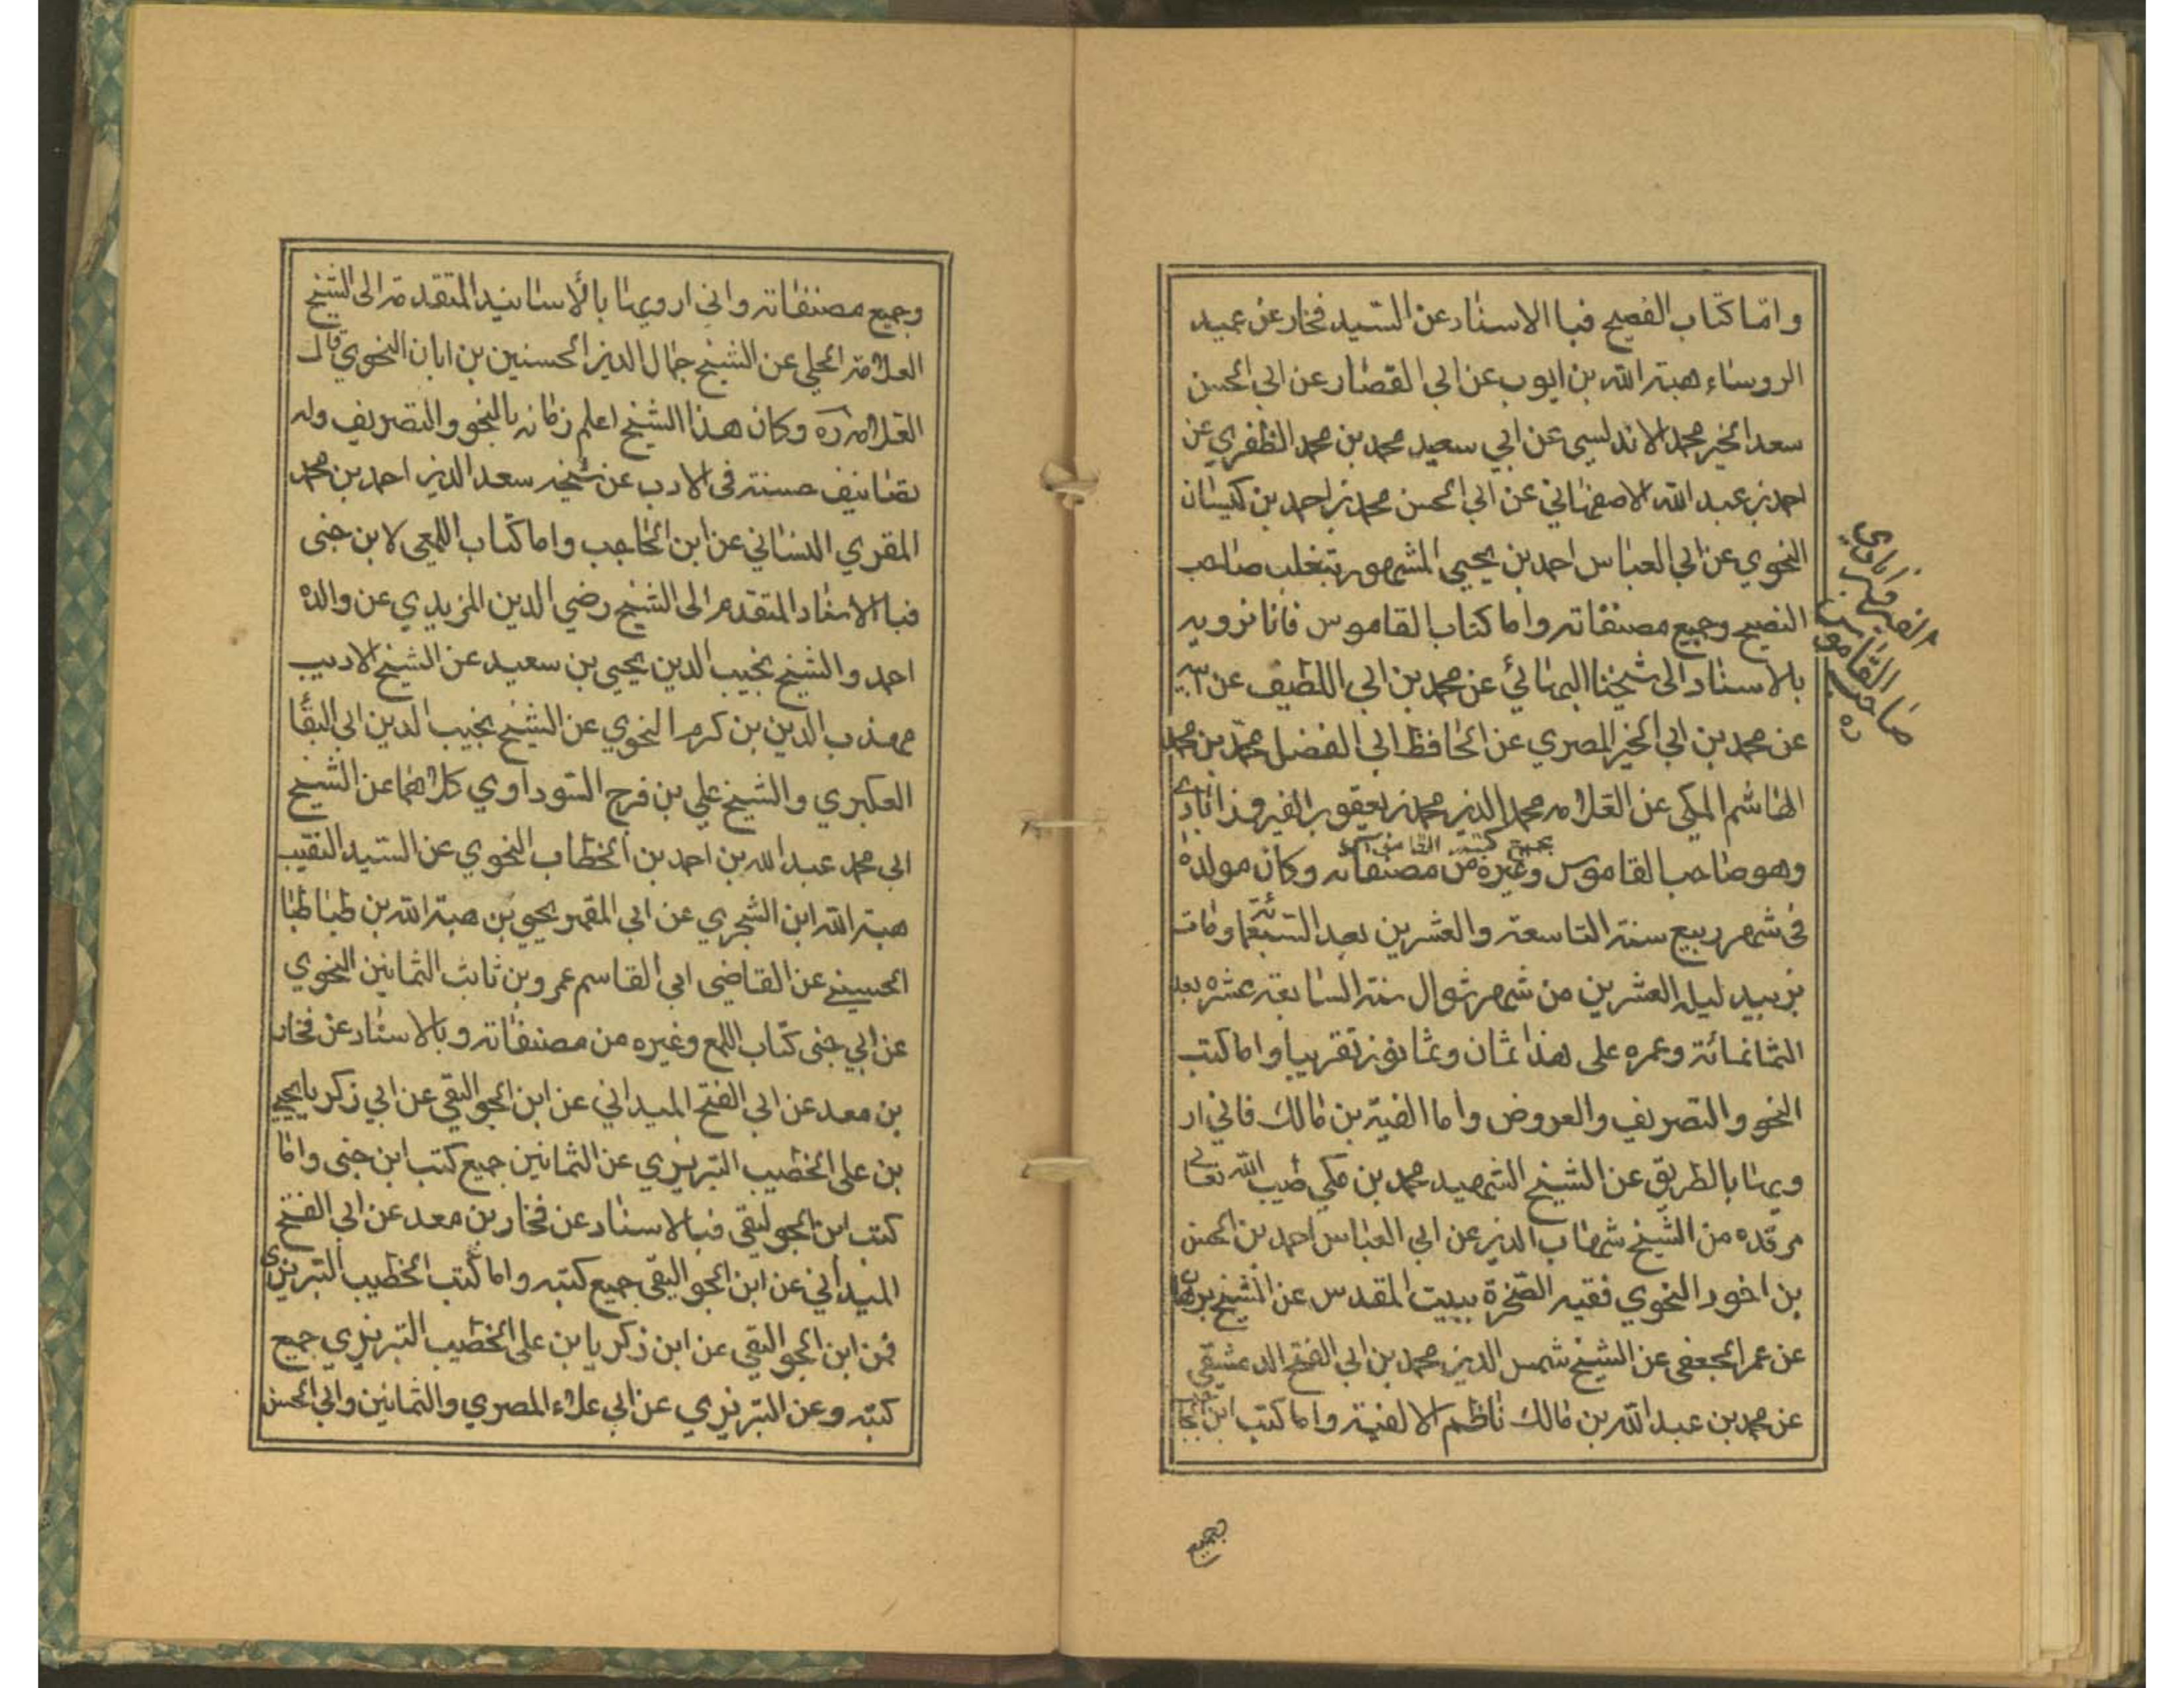 وامّا كتاب الفصيح فبا الاسناد عن السّيد فخار عن عميد
الروساء هبة الله بن ايوب عن ابي القصار عن ابي الحسن
سعد الخير محمد الاندلسي عن ابي سعيد محمد بن محمد الظفري عن
احمد بن عبد الله الاصفهاني عن ابي الحسن محمد بن احمد بن كيسان
النحوي عن ابي العباس احمد بن يحيى المشهور بتغلب صاحب
الفصيح وجميع مصنفاته واما كتاب القاموس فانا نرويه
بالاسناد الى شيخنا البهائي عن محمد بن ابي اللطيف عن ابيه
عن محمد بن ابي الخير المصري عن الحافظ ابي الفضل محمّد بن محمد
الهاشم المكي عن العلامه محمد الدين محمد بن يعقوب الفيروذابادي
بجميع كتبه القاموس
وهو صاحب القاموس وغيره من مصنفاته وكان مولده
في شهر ربيع سنة التاسعة والعشرين بعد السبعمائة ومات
بزبيد ليله العشرين من شهر شوال سنة السابعة عشره بعد
الثمانمائة وعمره على هذا ثمان وثمانون تقريبا واما كتب
النحو والتصريف والعروض واما الفية بن مالك فاني ار
ويها بالطريق عن الشيخ الشهيد محمد بن مكي طيب الله تعالى
مرقده من الشّيخ شهاب الدين عن ابي العباس احمد بن الحسن
بن اخود النحوي فقيه الصّخرة ببيت المقدس عن الشيخ برهان
عن عمر الجعفى عن الشيخ شمس الدين محمد بن ابي الفتح الدمشيقي
عن محمد بن عبد الله بن مالك ناظم الالفية واما كتب ابن الحاجب
الفيروزابادي
صاحب القاموس
ره
بجميع
وجميع مصنفاته واني ارويها بالأسانيد المتقدمة الى الشيخ
العلامة الحلي عن الشيخ جمال الدين الحسنين بن ابان النحوي قال
العلامه ره وكان هذا الشيخ اعلم زمانه بالنحو والتصريف وله
تصانيف حسنة في الادب عن شيخه سعد الدين احمد بن محمد
المقري النساني عن ابن الحاجب واما كتاب اللمعي لابن جنى
فبا الاسناد المتقدم الى الشيخ رضي الدين المزيدي عن والده
احمد والشيخ نجيب الدين يحيى بن سعيد عن الشيخ الاديب
مهذب الدين بن كرم النحوي عن الشيخ نجيب الدين ابي البقا
العكبري والشيخ علي بن فرج السوداوي كلاهما عن الشيخ
ابي محمد عبد الله بن احمد بن الخطاب النحوي عن السيد النقيب
هبة الله ابن الشجري عن ابي المقمر يحيى بن هبة الله بن طباطبا
الحسيني عن القاضى ابي القاسم عمرو بن ثابت الثمانين النحوي
عن ابي جنى كتاب اللمع وغيره من مصنفاته وبالاسناد عن فخار
بن معد عن ابي الفتح الميداني عن ابن الجو اليقي عن ابي زكريا يحيى
بن على الخطيب التبريزي عن الثمانين جميع كتب ابن جنى واما
كتب ابن الجو ليقى فبالاسناد عن فخار بن معد عن ابي الفتح
الميداني عن ابن الجو اليقى جميع كتبه واما كتب الخطيب التبريزي
فمن ابن الجو اليقي عن ابن زكريا بن على الخطيب التبريزي جميع
كتبه وعن التبريزي عن ابي علاء المصري والثمانين وابي الحسن